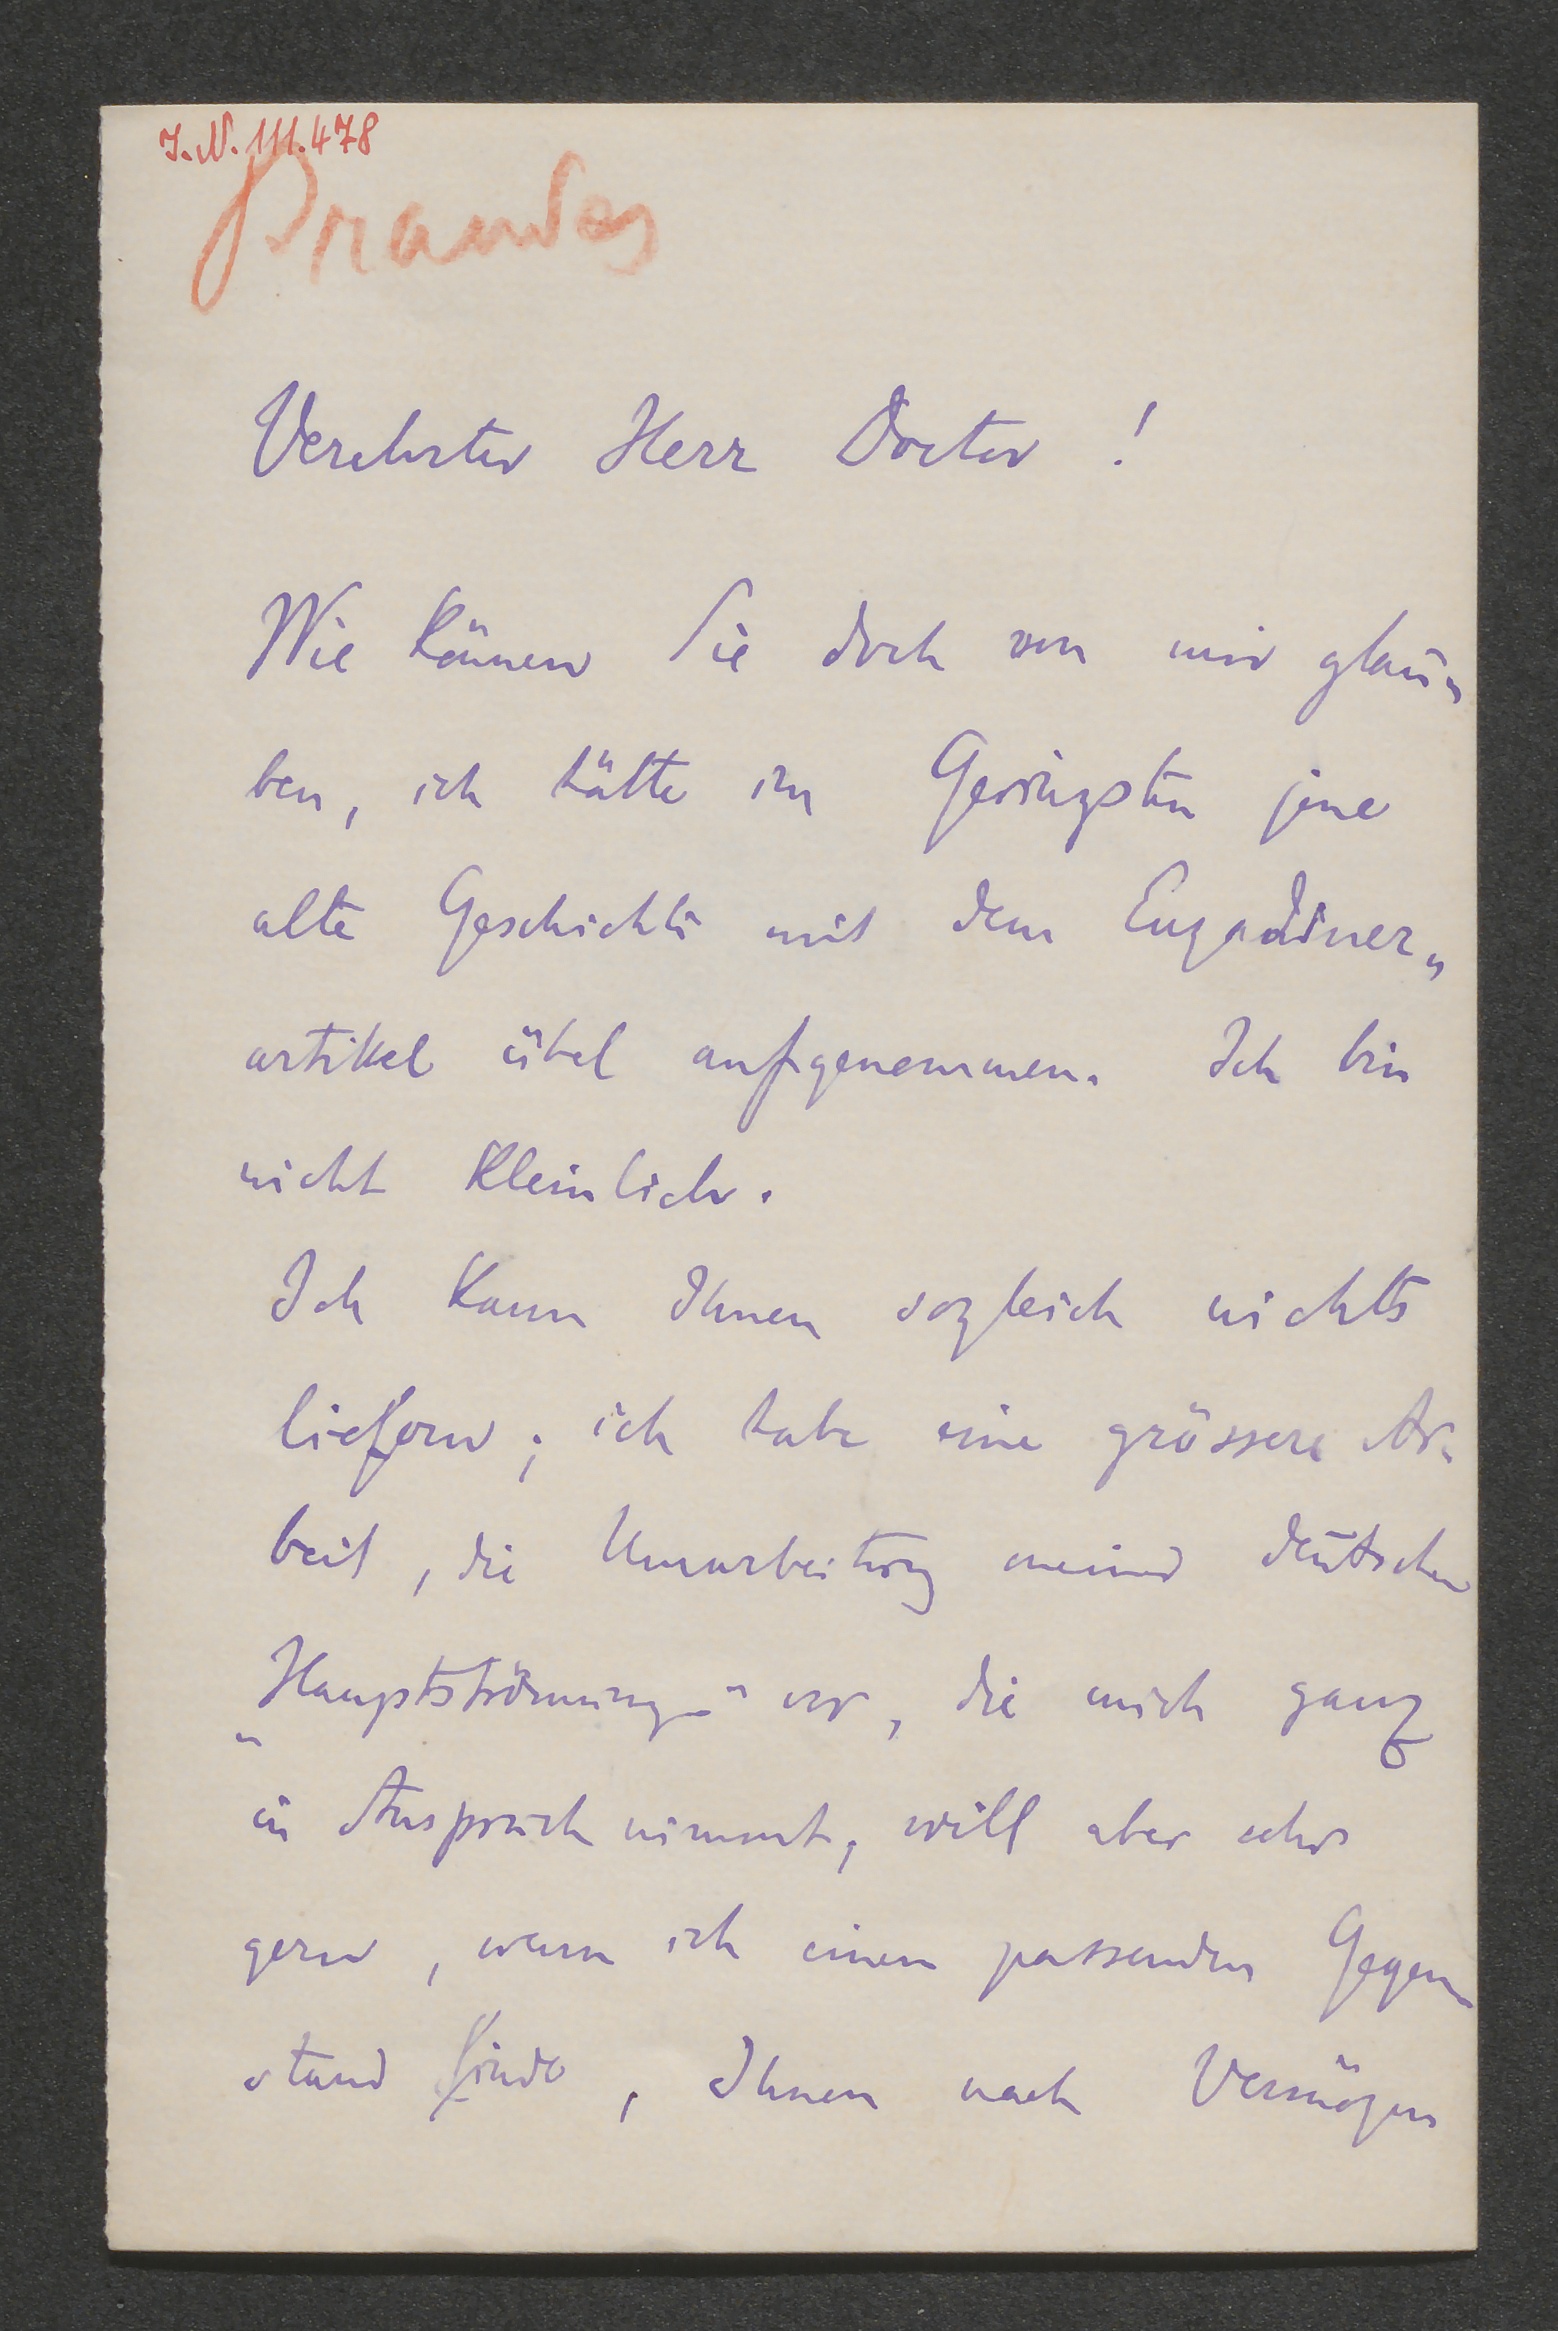 J.N. 111.478
Brandes
Verehrter Herr Doctor!
Wie können Sie doch von mir glau-
ben, ich hätte im Geringsten jene
alte Geschichte mit dem Engadiner-
artikel übel aufgenommen. Ich bin
nicht kleinlich.
Ich kann Ihnen sogleich nichts
liefern; ich habe eine grössere Ar-
beit, die Umarbeitung meiner deutschen
„Hauptströmungen" vor, die mich ganz
in Anspruch nimmt, will aber sehr
gern, wenn ich einen passenden Gegen-
stand finde, Ihnen nach Vermögen